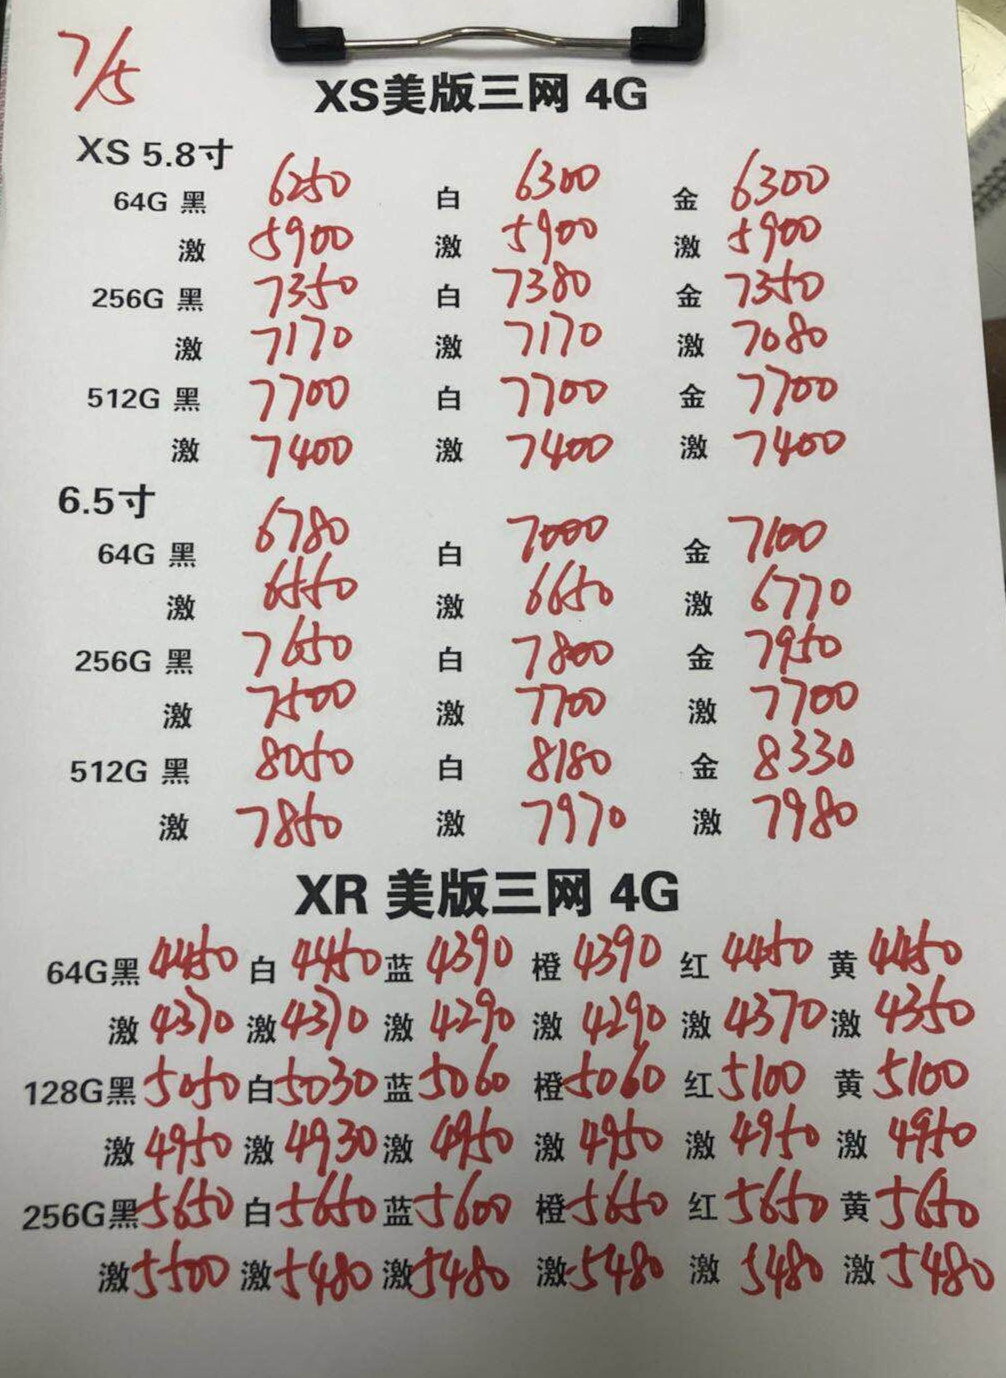 7/5
XS美版三网 4G
XS 5.8寸
64G 黑 6250 白 6300 金 6300
激 5900 激 5900 激 5900
256G 黑 7350 白 7380 金 7350
激 7170 激 7170 激 7080
512G 黑 7700 白 7700 金 7700
激 7400 激 7400 激 7400
6.5寸
64G 黑 6780 白 7000 金 7100
激 6550 激 6650 激 6770
256G 黑 7650 白 7800 金 7950
激 7500 激 7700 激 7700
512G 黑 8050 白 8180 金 8330
激 7850 激 7970 激 7980
XR 美版三网 4G
64G黑 4450 白 4450 蓝 4390 橙 4390 红 4450 黄 4450
激 4370 激 4370 激 4290 激 4290 激 4370 激 4350
128G黑 5050 白 5030 蓝 5060 橙 5060 红 5100 黄 5100
激 4950 激 4930 激 4950 激 4950 激 4950 激 4950
256G黑 5650 白 5650 蓝 5600 橙 5650 红 5650 黄 5650
激 5500 激 5480 激 5480 激 5480 激 5480 激 5480